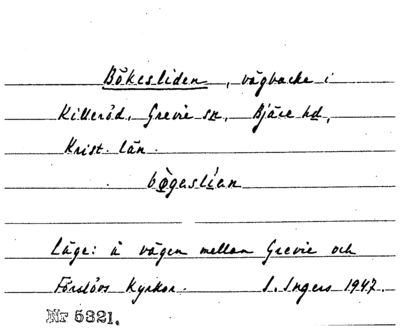 Bökesliden, vägbacke i
Killeröd, Grevie sn, Bjäre hd,
Krist. län.
bö̀gaslían
Läge: å vägen mellan Grevie och
Förslövs kyrkor. I. Ingers 1947.
Nr 5321.